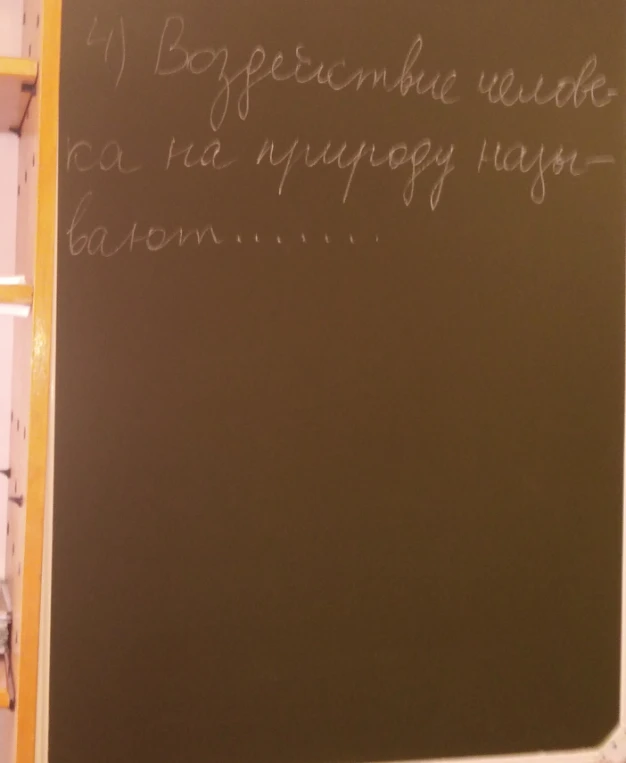 4) Воздействие челове-
ка на природу назы-
вают.......